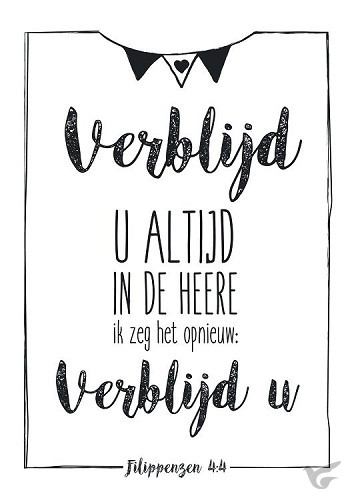 Verblijd
U ALTIJD
IN DE HEERE
ik zeg het opnieuw:
Verblijd u
Filippenzen 4:4